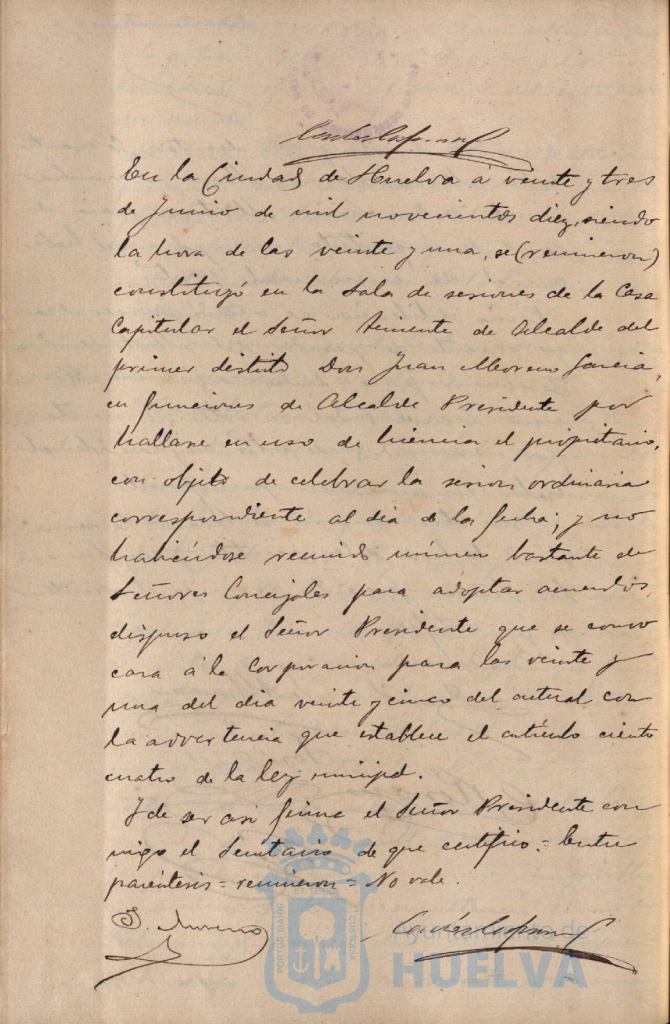 En la Ciudad de Huelva á veinte y tres
de Junio de mil novecientos diez, siendo
la hora de las veinte y una, se (reunieron)
constituyó en la Sala de sesiones de la Casa
Capitular el Señor Teniente de Alcalde del
primer distrito Don Juan Moreno Garcia,
en funciones de Alcalde Presidente por
hallarse en uso de licencia el propietario,
con objeto de celebrar la sesion ordinaria
correspondiente al dia de la fecha; y no
habiéndose reunido número bastante de
Señores Concejales para adoptar acuerdos,
dispuso el Señor Presidente que se convo
cara á la Corporacion para las veinte y
una del dia veinte y cinco del actual con
la advertencia que establece el artículo ciento
cuatro de la ley municipal.
Y de ser asi firma el Señor Presidente con
migo el Secretario de que certifico = Entre
paréntesis = reunieron = No vale.
J. Moreno
PORTUS MARIS CUSTODIA
Ayuntamiento de
HUELVA